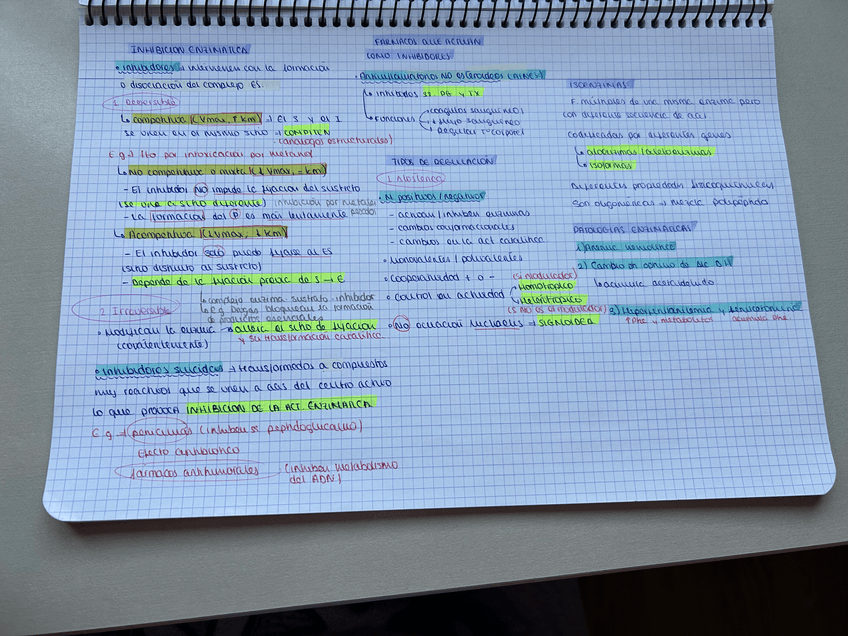 INHIBICION ENZIMATICA
• Inhibidores → intervienen con la formación
o disociación del complejo ES.
1. Reversible
↳ competitiva (↓Vmax, ↑Km) → el S y el I
se unen en el mismo sitio → COMPITEN
(análogos estructurales)
E.g → tto por intoxicación por metanol
↳ No competitiva o mixta (↓Vmax, = Km)
- El inhibidor NO impide la fijación del sustrato
(se une a sitio diferente) inhibición por metales
pesados
- La formación del P es más lentamente
↳ Acompetitiva (↓Vmax, ↓Km)
- El inhibidor solo puede fijarse al ES
(sitio distinto al sustrato)
- Depende de la fijación previa de S → E
↳ complejo enzima sustrato inhibidor
↳ e.g. Drogas bloquean la formación
de productos esenciales
2. Irreversible
• Modifican la enzima → altera el sitio de fijación
(covalentemente) y su transformación catalítica.
• Inhibidores suicidas → transformados a compuestos
muy reactivos que se unen a aas del centro activo
lo que provoca INHIBICION DE LA ACT. ENZIMATICA
E.g → penicilinas (inhiben st peptidoglucano)
Efecto antibiotico
farmacos antitumorales (inhiben metabolismo
del ADN)
FARMACOS QUE ACTUAN
COMO INHIBIDORES
• Antiinflamatorios NO esteroideos (AINES)
↳ inhibidos ST. PG y TX
↳ Funciones
coagulos sanguineos
flujo sanguineo
Regular Tº corporal
TIPOS DE REGULACION
1. Alosterica
• M. positivos / negativos
- activan / inhiben enzimas
- cambios conformacionales
- cambios en la act catalitica
• Monovalentes / polivalentes
• Cooperatividad + o -
• Control en actividad
(si modulador)
Homotropico
Heterotropico
(S NO es el modulador)
• No ecuación Michaelis → SIGMOIDEA
ISOENZIMAS
F. multiples de una misma enzima pero
con diferente secuencia de aa
Codificadas por diferentes genes
↳ aloenzimas / aleloenzimas
↳ isoformas
Diferentes propiedades fisicoquimicas
Son oligomericas → mezcla polipéptido
PATOLOGIAS ENZIMATICAS
1) Anemia hemolitica
2) Cambio en
↳ acumula
3) Hiperfenilalaninemia y fenilcetonuria
↑Phe y metabolitos acumula Phe